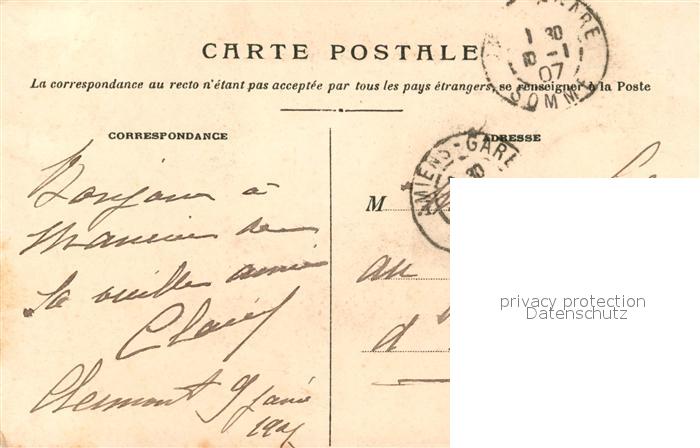 CARTE POSTALE
La correspondance au recto n'étant pas acceptée par tous les pays étrangers, se renseigner à la Poste
GARE
1 30
10-1
07
SOMME
CORRESPONDANCE
ADRESSE
MIENS-GARE
30
Bonjour à
Maurice de
Sa vieille amie
Claire
Clermont 9 Janv
1907
M
au
d'
privacy protection
Datenschutz